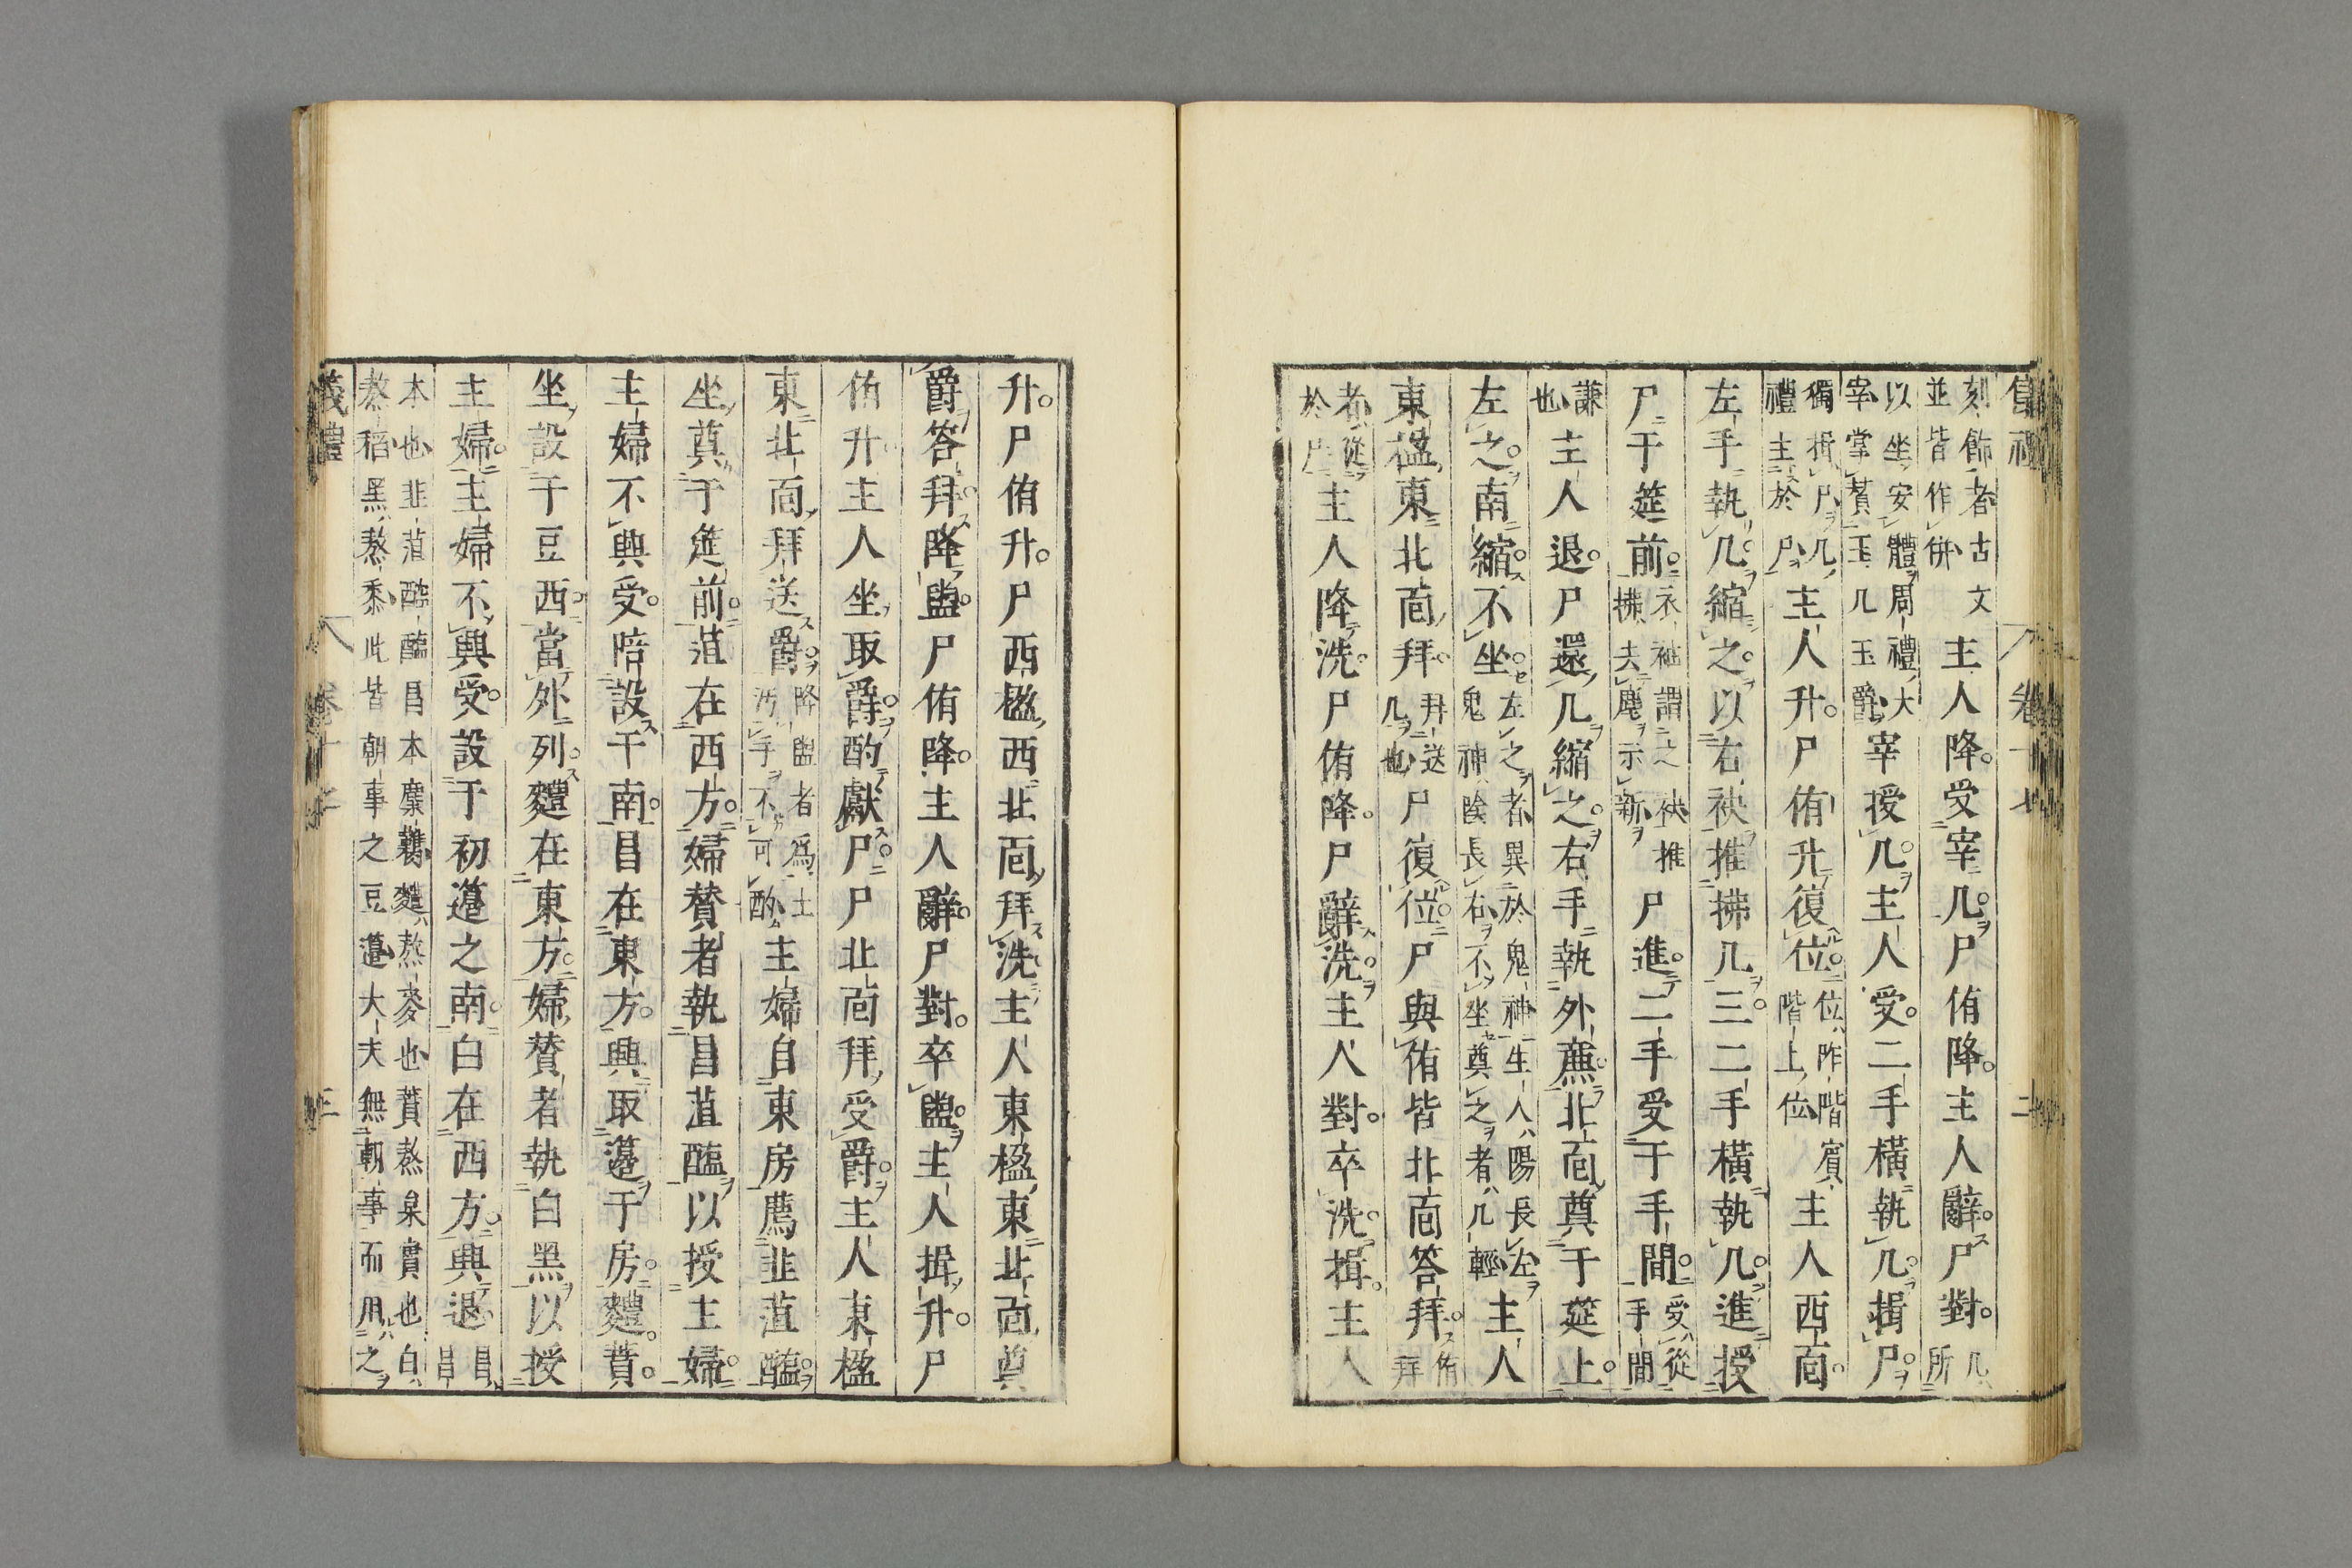 刻飾者古文
並皆作併
主人降受宰几尸侑降主人辭尸對
几
所
以坐安體周禮大
宰掌贊玉几玉爵
宰授几主人受二手橫執几揖尸
獨揖尸几
禮主於尸
主人升尸侑升復位
位阼階賓
階上位
主人西面
左手執几縮之以右袂推拂几三二手橫執几進授
尸于筵前
衣袖謂之袂推
拂去塵示新
尸進二手受于手間
受從
手間
謙
也
主人退尸還几縮之右手執外廉北面奠于筵上
左之南縮不坐
左之者異於鬼神生人陽長左
鬼神陰長右不坐奠之者几輕
主人
東楹東北面拜
拜送
几也
尸復位尸與侑皆北面答拜
侑
拜
者從
於尸
主人降洗尸侑降尸辭洗主人對卒洗揖主人
卷十七
二
升尸侑升尸西楹西北面拜洗主人東楹東北面奠
爵答拜降盥尸侑降主人辭尸對卒盥主人揖升尸
侑升主人坐取爵酌獻尸尸北面拜受爵主人東楹
東北面拜送爵
降盥者爲土
汚手不可酌
主婦自東房薦韭菹醢
坐奠于筵前菹在西方婦贊者執昌菹醢以授主婦
主婦不興受陪設于南昌在東方興取籩于房麷蕡
坐設于豆西當外列麷在東方婦贊者執白黑以授
主婦主婦不興受設于初籩之南白在西方興退
昌
昌
本也韭菹醓醢昌本麋臡麷熬麥也蕡熬枲實也白
熬稻黑熬黍此皆朝事之豆籩大夫無朝事而用之
儀禮
卷十七
三